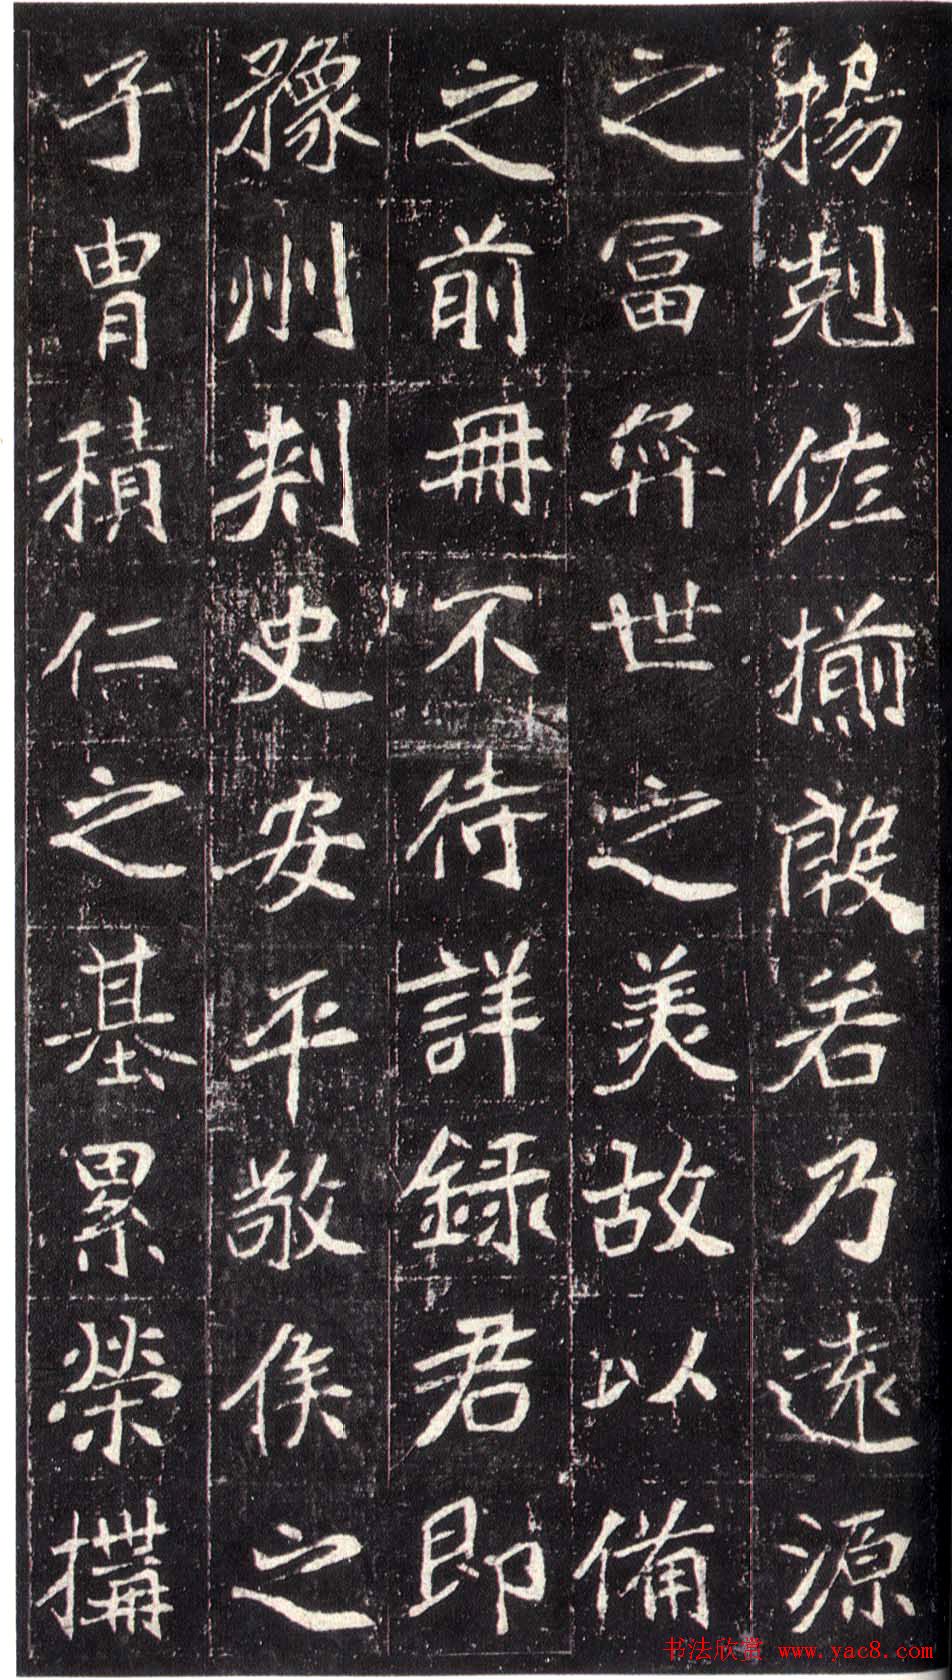 揚剋佐揃殷若乃遠源
之冨弈世之美故以備
之前冊不待詳録君即
豫州刾史安平敬侯之
子胄積仁之基累榮搆
书法欣赏 www.yac8.com